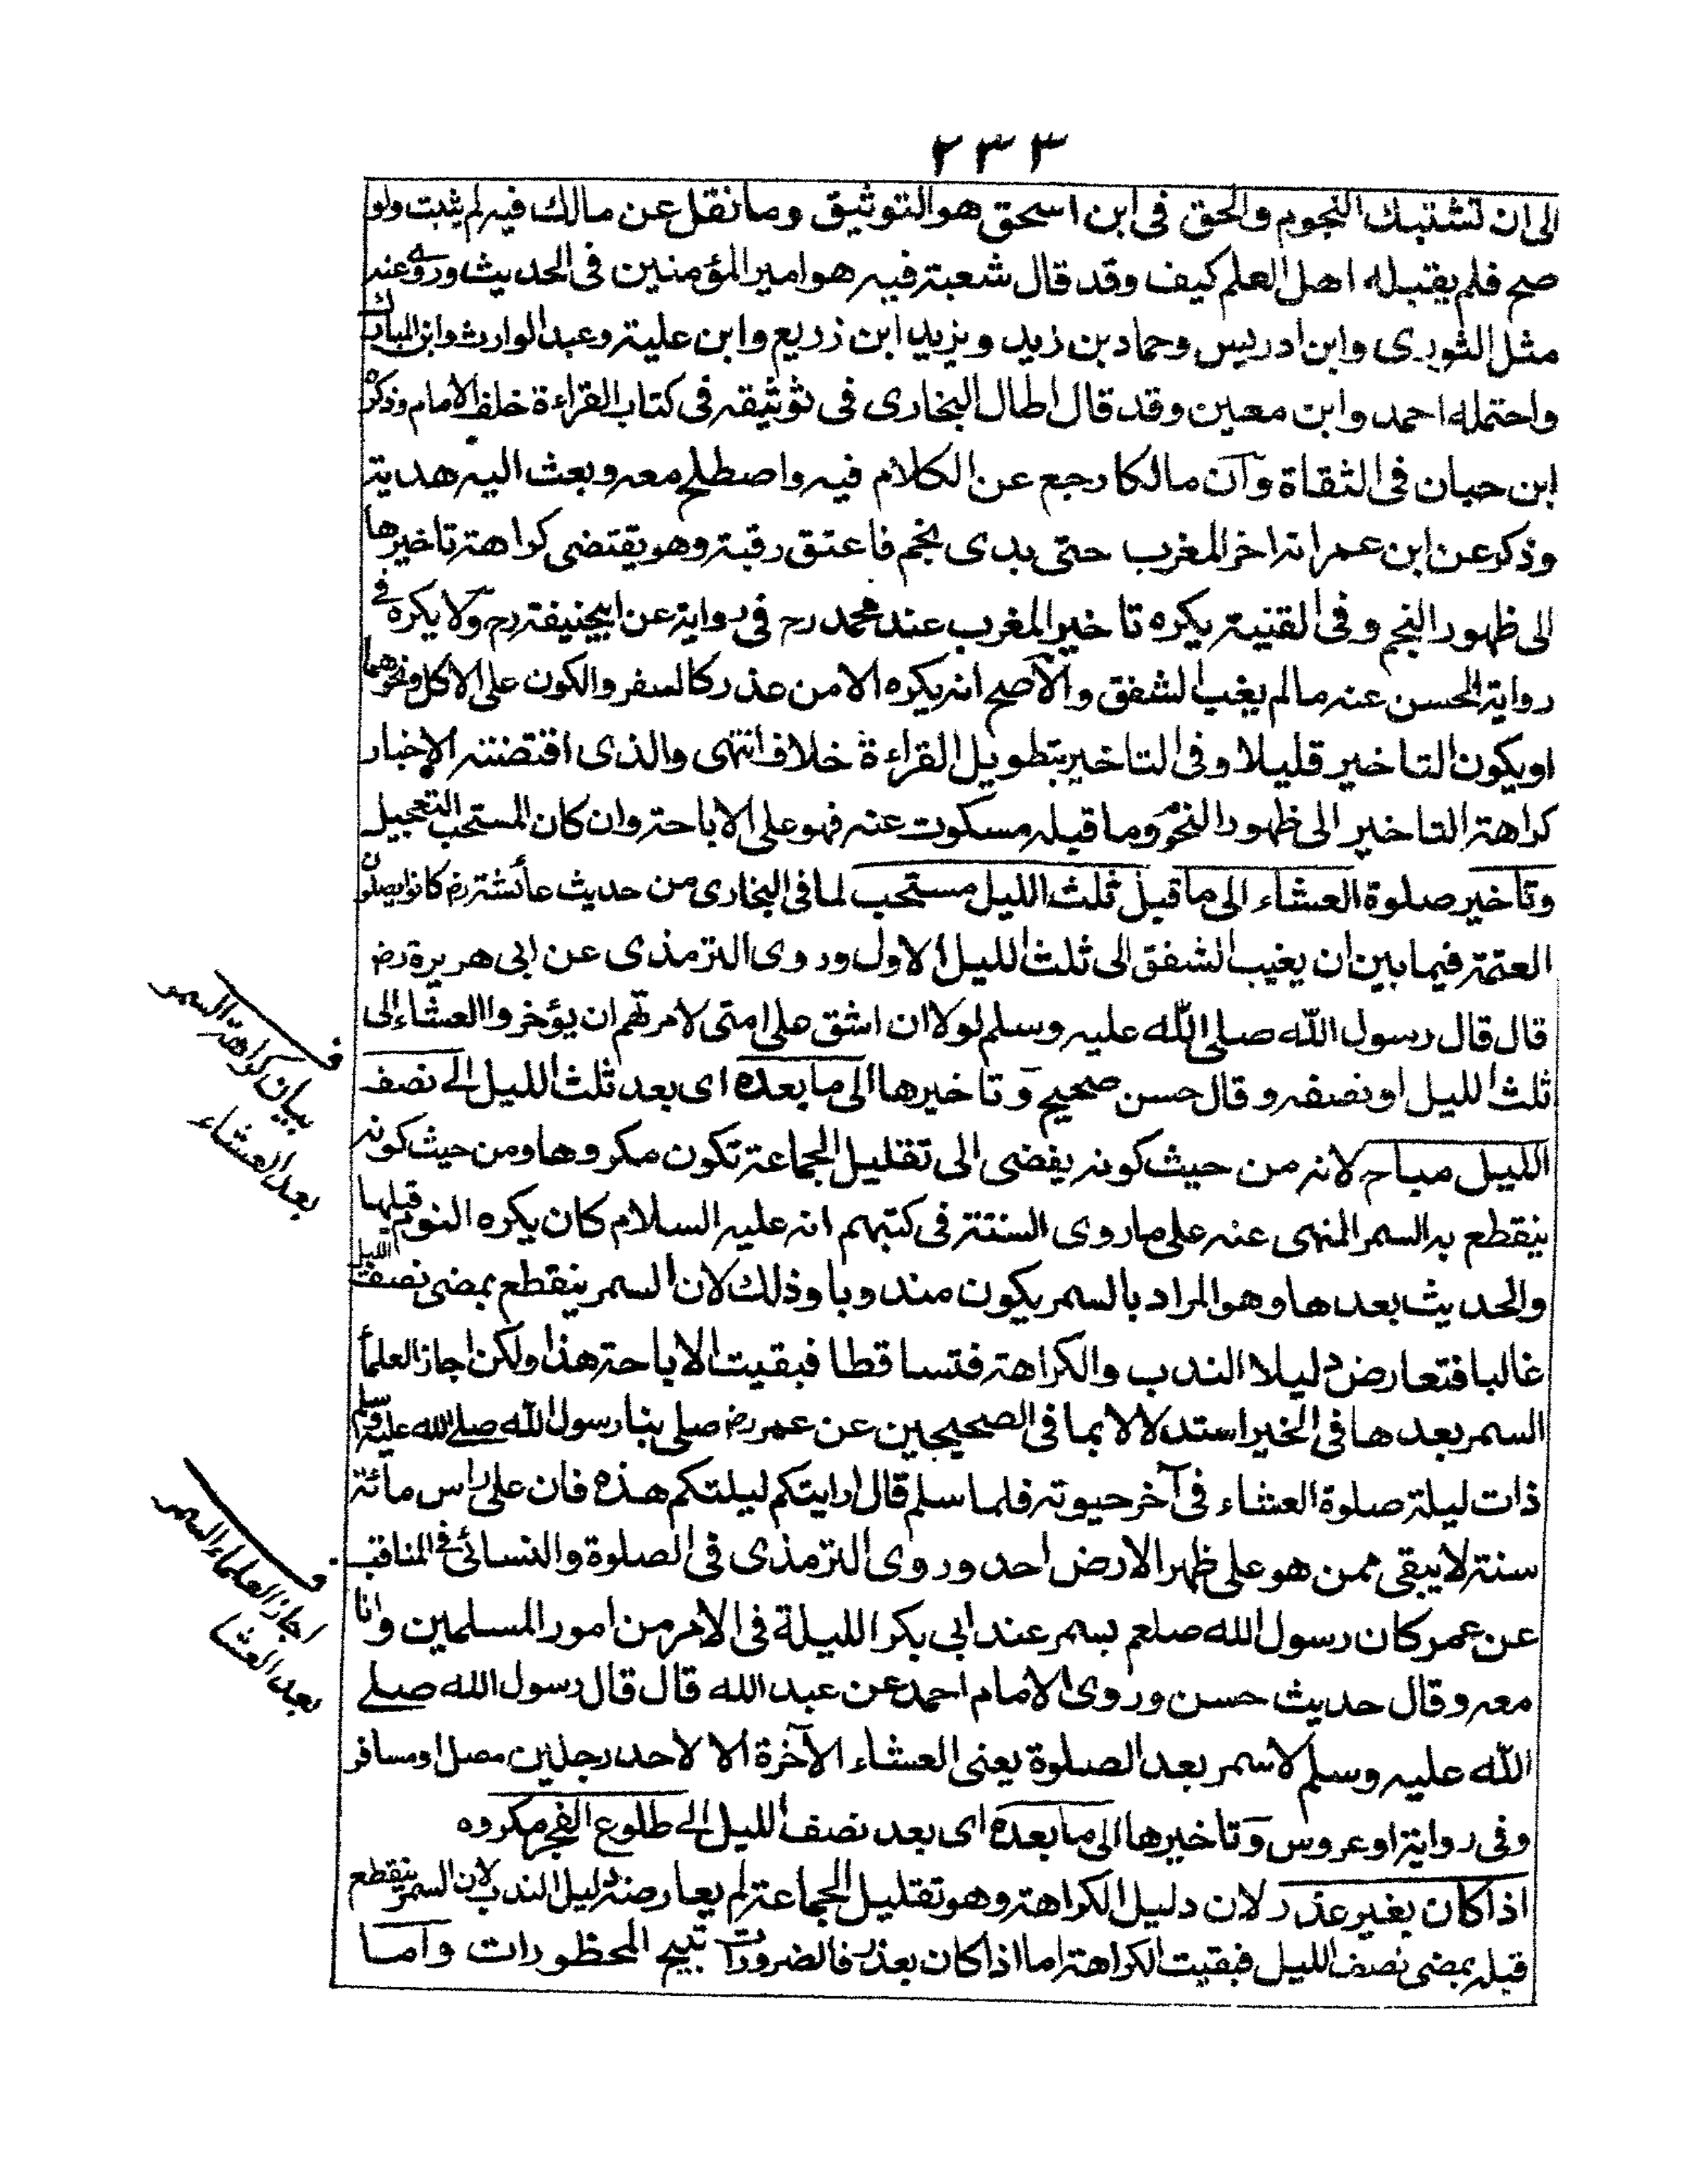 ٢٣٣
الى ان تشتبك النجوم والحق فى ابن اسحق هو التوثيق وما نقل عن مالك فيه لم يثبت ولو
صح فلم يقبله اهل العلم كيف وقد قال شعبة فيه هو امير المؤمنين فى الحديث وروى عنه
مثل الثورى وابن ادريس وحماد بن زيد ويزيد ابن زريع وابن علية وعبد الوارث وابن المبارك
واحتمله احمد وابن معين وقد قال اطال البخارى فى توثيقه فى كتاب القراءة خلف الامام وذكره
ابن حبان فى الثقاة وآن مالكا رجع عن الكلام فيه واصطلح معه وبعث اليه هدية
وذكر عن ابن عمر انه اخر المغرب حتى بدى نجم فاعتق رقبة وهو يقتضى كراهة تاخيرها
الى ظهور النجم وفى القنية يكره تاخير المغرب عند محمد رح فى رواية عن ابيحنيفة رح ولا يكره فى
رواية الحسن عنه ما لم يغب الشفق والآصح انه يكره الا من عذر كالسفر والكون على الاكل ونحوهما
او يكون التاخير قليلا وفى التاخير بتطويل القراءة خلاف انتهى والذى اقتضته الاخبار
كراهة التاخير الى ظهور النجم وما قبله مسكوت عنه فهو على الاباحة وان كان المستحب التعجيل
وتاخير صلوة العشاء الى ما قبل ثلث الليل مستحب لما فى البخارى من حديث عائشة رض كانوا يصلون
العتمة فيما بين ان يغيب الشفق الى ثلث الليل الاول وروى الترمذى عن ابى هريرة رض
قال قال رسول الله صلى الله عليه وسلم لولا ان اشق على امتى لامرتهم ان يؤخروا العشاء الى
ثلث الليل او نصفه وقال حسن صحيح وتاخيرها الى ما بعده اى بعد ثلث الليل الى نصف
الليل مباح لانه من حيث كونه يفضى الى تقليل الجماعة تكون مكروها ومن حيث كونه
ينقطع به السمر المنهى عنه على ما روى الستة فى كتبهم انه عليه السلام كان يكره النوم قبلها
والحديث بعدها وهو المراد بالسمر يكون مندوبا وذلك لان السمر ينقطع بمضى نصف الليل
غالبا فتعارض دليلا الندب والكراهة فتساقطا فبقيت الاباحة هذا ولكن اجاز العلمأ
السمر بعدها فى الخير استدلالا بما فى الصحيحين عن عمر رض صلى بنا رسول الله صلى الله عليه وسلم
ذات ليلة صلوة العشاء فى آخر حيوته فلما سلم قال ارايتكم ليلتكم هذه فان على راس مائة
سنة لا يبقى ممن هو على ظهر الارض احد وروى الترمذى فى الصلوة والنسائى فى المناقب
عن عمر كان رسول الله صلعم يسمر عند ابى بكر الليلة فى الامر من امور المسلمين وانا
معه وقال حديث حسن وروى الامام احمد عن عبد الله قال قال رسول الله صلى
الله عليه وسلم لا سمر بعد الصلوة يعنى العشاء الآخرة الا لاحد رجلين مصل او مسافر
وفى رواية او عروس وتاخيرها الى ما بعده اى بعد نصف الليل الى طلوع الفجر مكروه
اذا كان بغير عذر لان دليل الكراهة وهو تقليل الجماعة لم يعارضه دليل الندب لان السمر ينقطع
قبله بمضى نصف الليل فبقيت الكراهة اما اذا كان بعذر فالضرورات تبيح المحظورات وآما
ف
بيان كراهة السمر
بعد العشاء
ف
اجاز العلماء السمر
بعد العشا